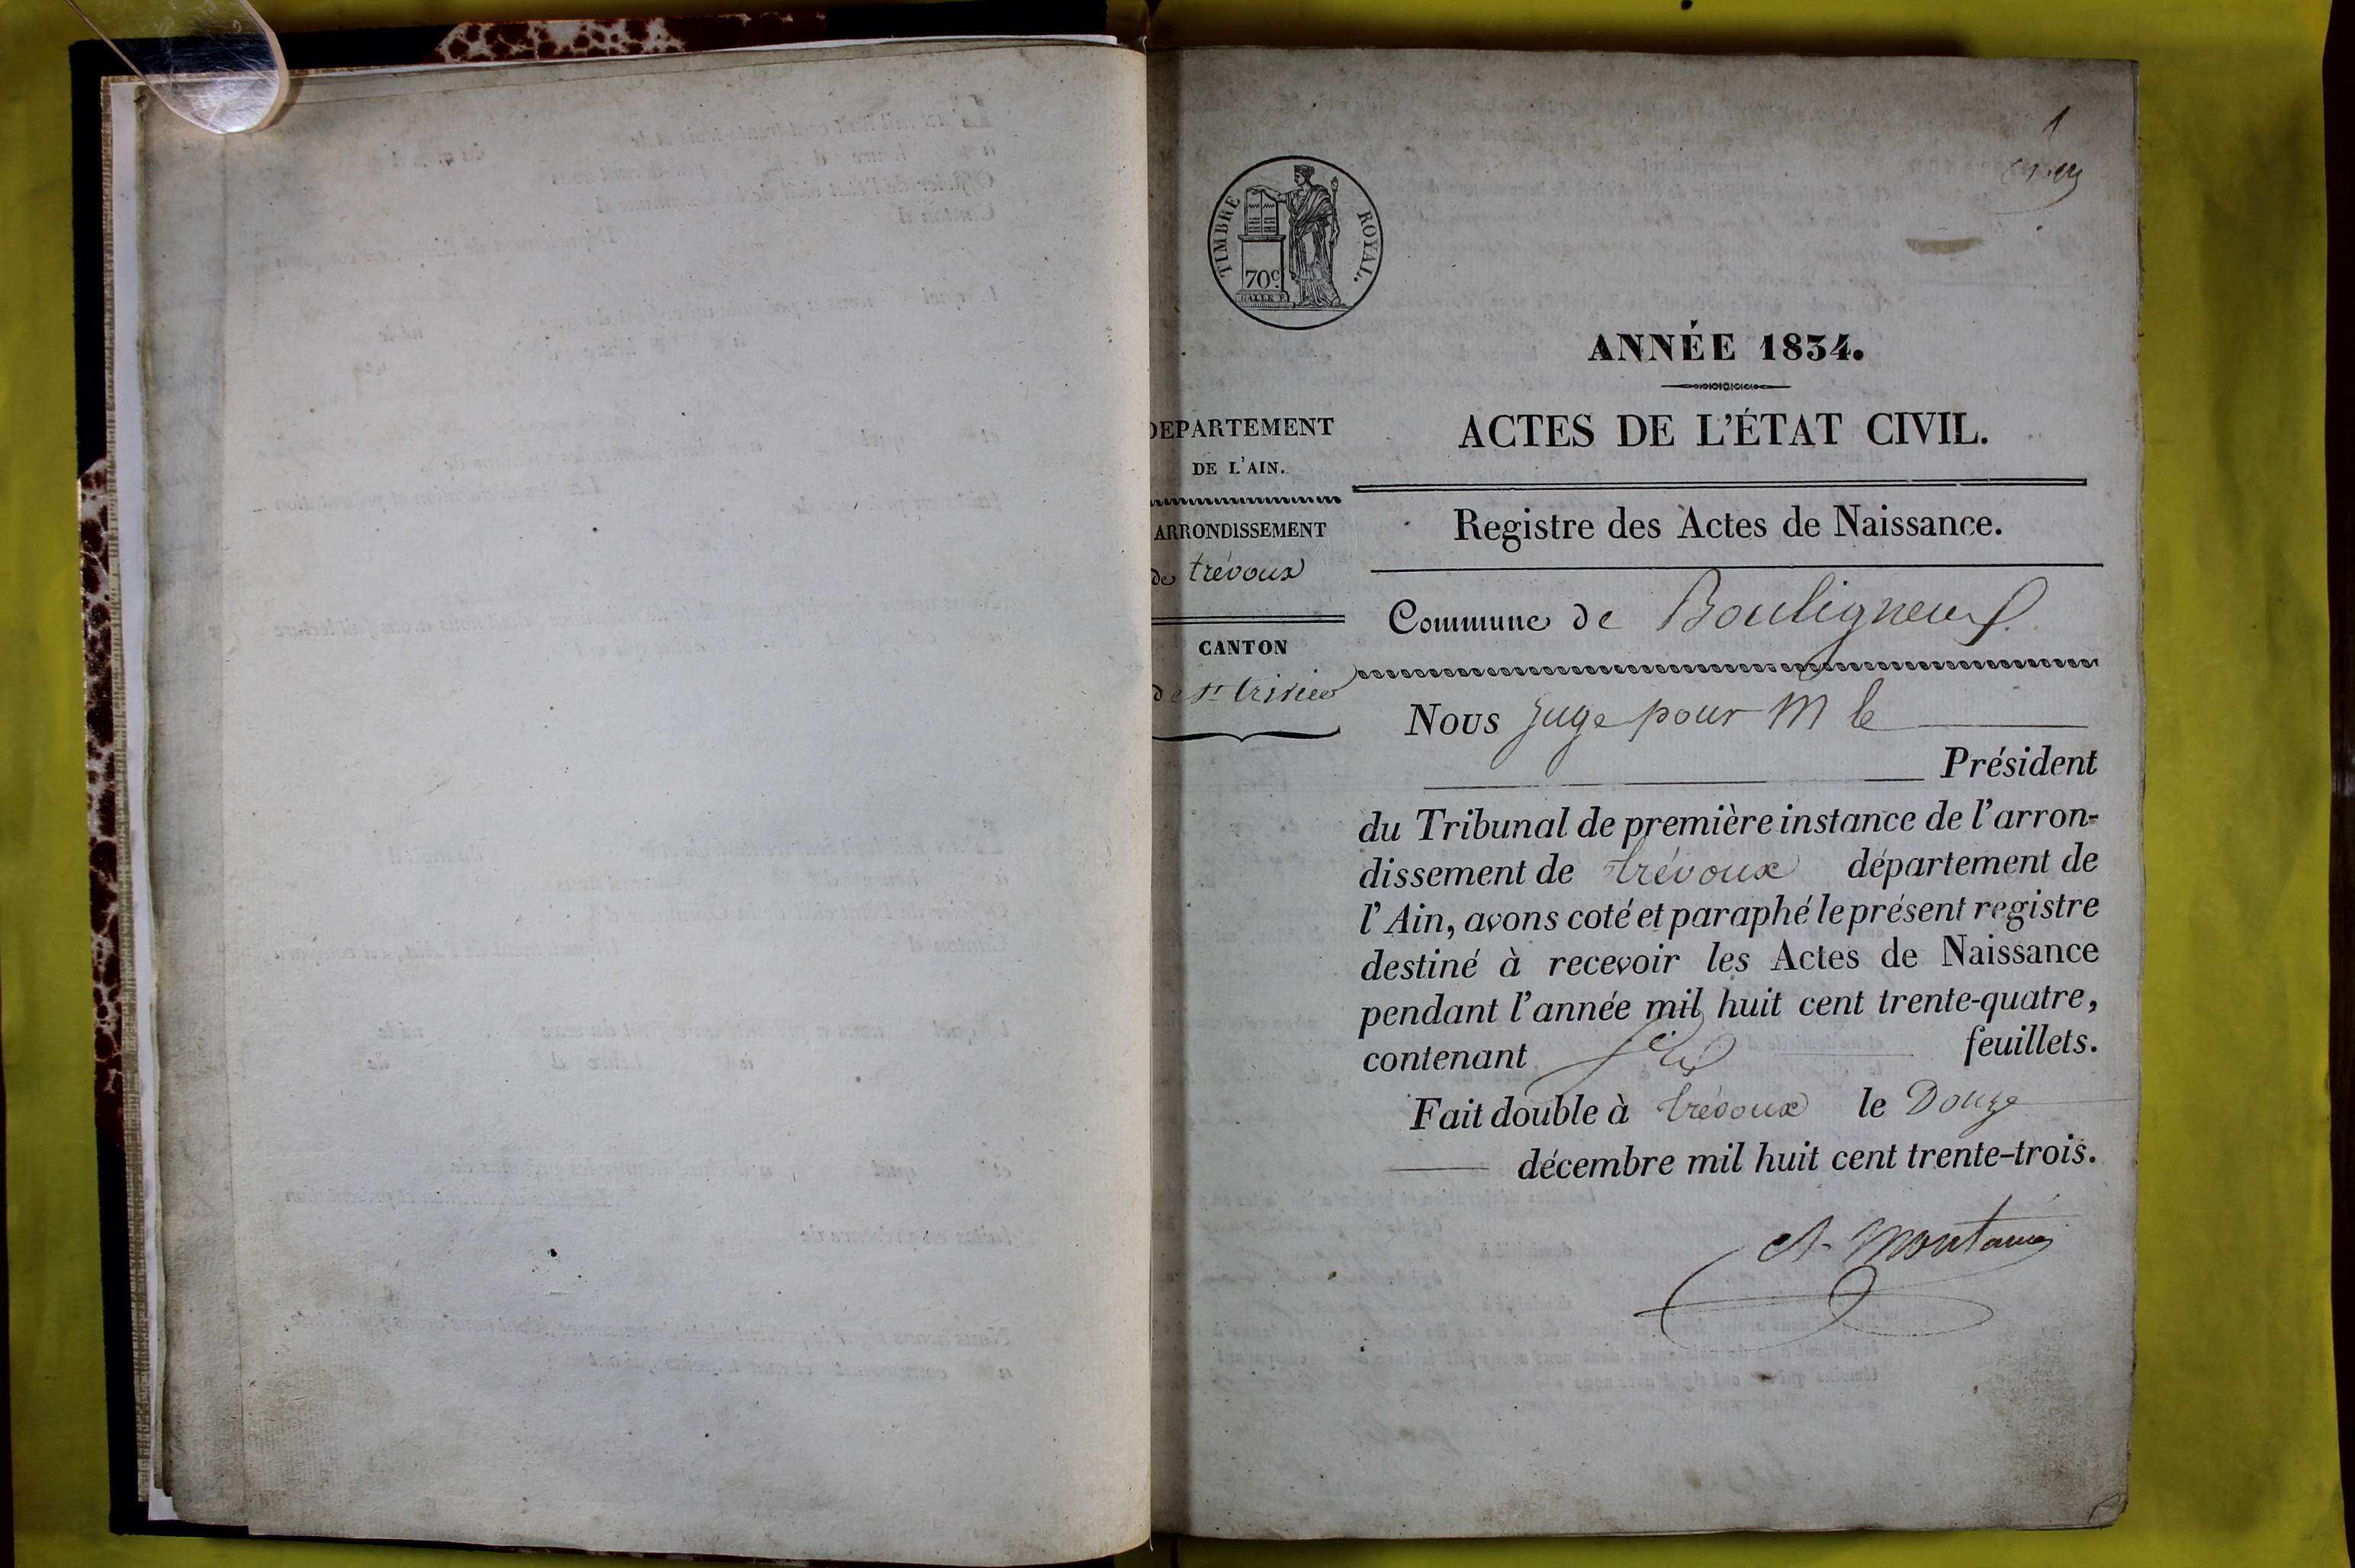 1
TIMBRE ROYAL.
70c.
ANNÉE 1834.
DEPARTEMENT
DE L'AIN.
ARRONDISSEMENT
de trévoux
CANTON
de st trivier
ACTES DE L'ÉTAT CIVIL.
Registre des Actes de Naissance.
Commune de Bouligneux
Nous Juge pour M le
Président
du Tribunal de première instance de l'arron-
dissement de trévoux département de
l'Ain, avons coté et paraphé le présent registre
destiné à recevoir les Actes de Naissance
pendant l'année mil huit cent trente-quatre,
contenant six feuillets.
Fait double à trévoux le Douze
décembre mil huit cent trente-trois.